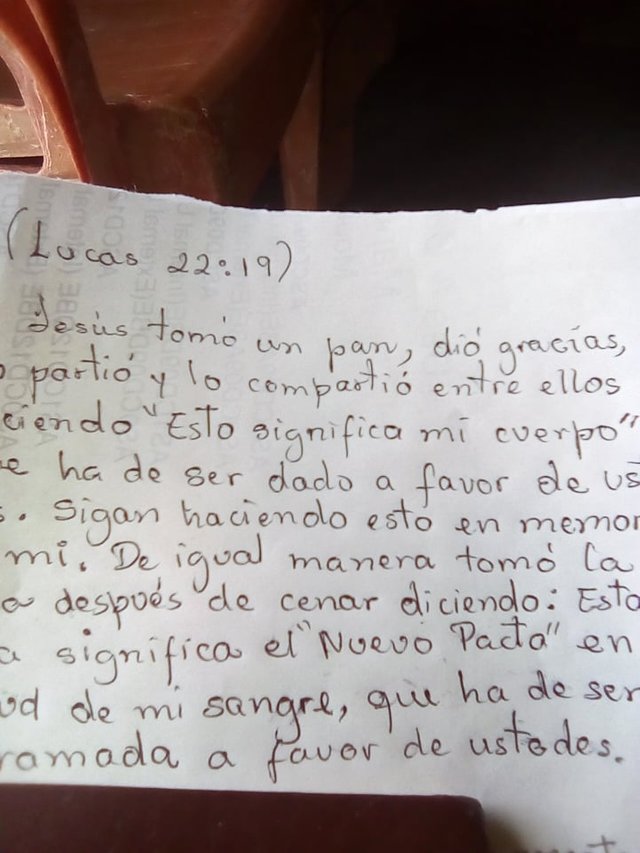 (Lucas 22:19)
Jesús tomó un pan, dió gracias,
o partió y lo compartió entre ellos
ciendo "Esto significa mi cuerpo"
e ha de ser dado a favor de us
s. Sigan haciendo esto en memor
mi. De igual manera tomó la
a después de cenar diciendo: Esta
a significa el "Nuevo Pacto" en
ud de mi sangre, que ha de ser
ramada a favor de ustedes.